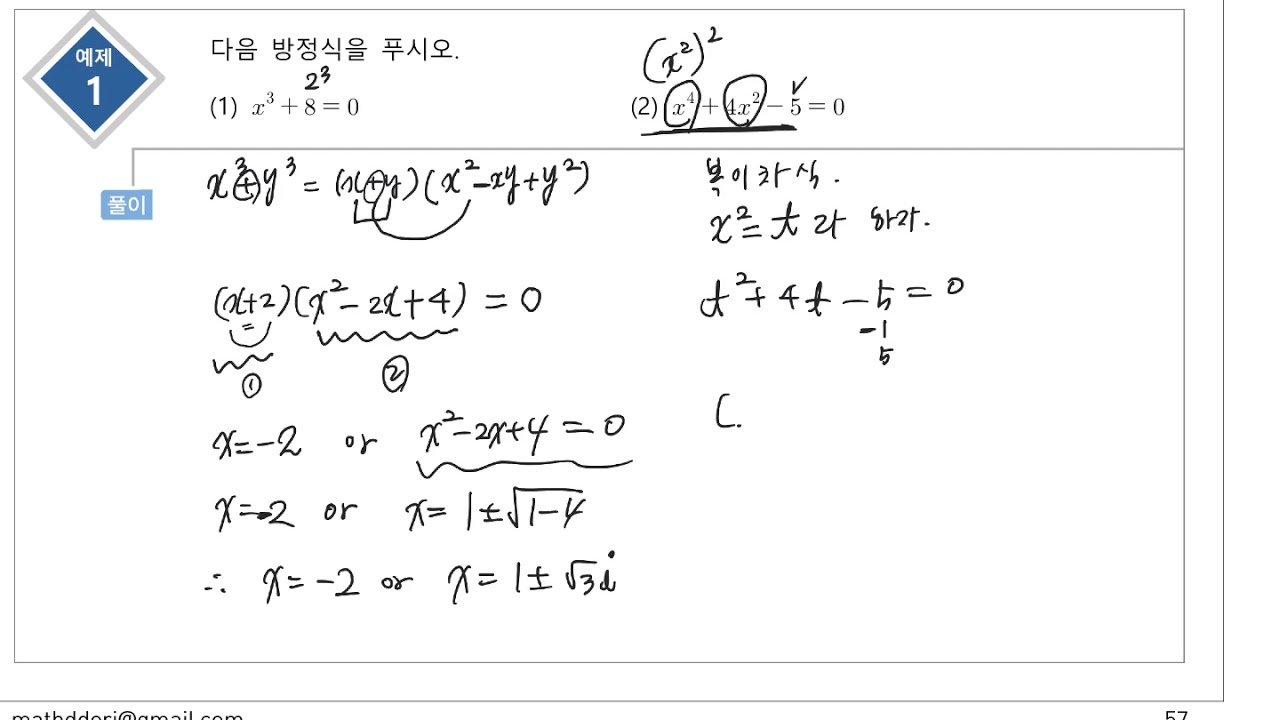 예제
1
다음 방정식을 푸시오.
2³
(x²)²
(1) x³ + 8 = 0
(2) x⁴ + 4x² − 5 = 0
풀이
x³+y³ = (x+y)(x²−xy+y²)
(x+2)(x²−2x+4) = 0
① ②
x=−2 or x²−2x+4 = 0
x=−2 or x= 1±√(1−4)
∴ x=−2 or x= 1± √3i
복이차식.
x²= t 라 하자.
t²+4t−5=0
−1
5
(
mathddori@gmail.com
57